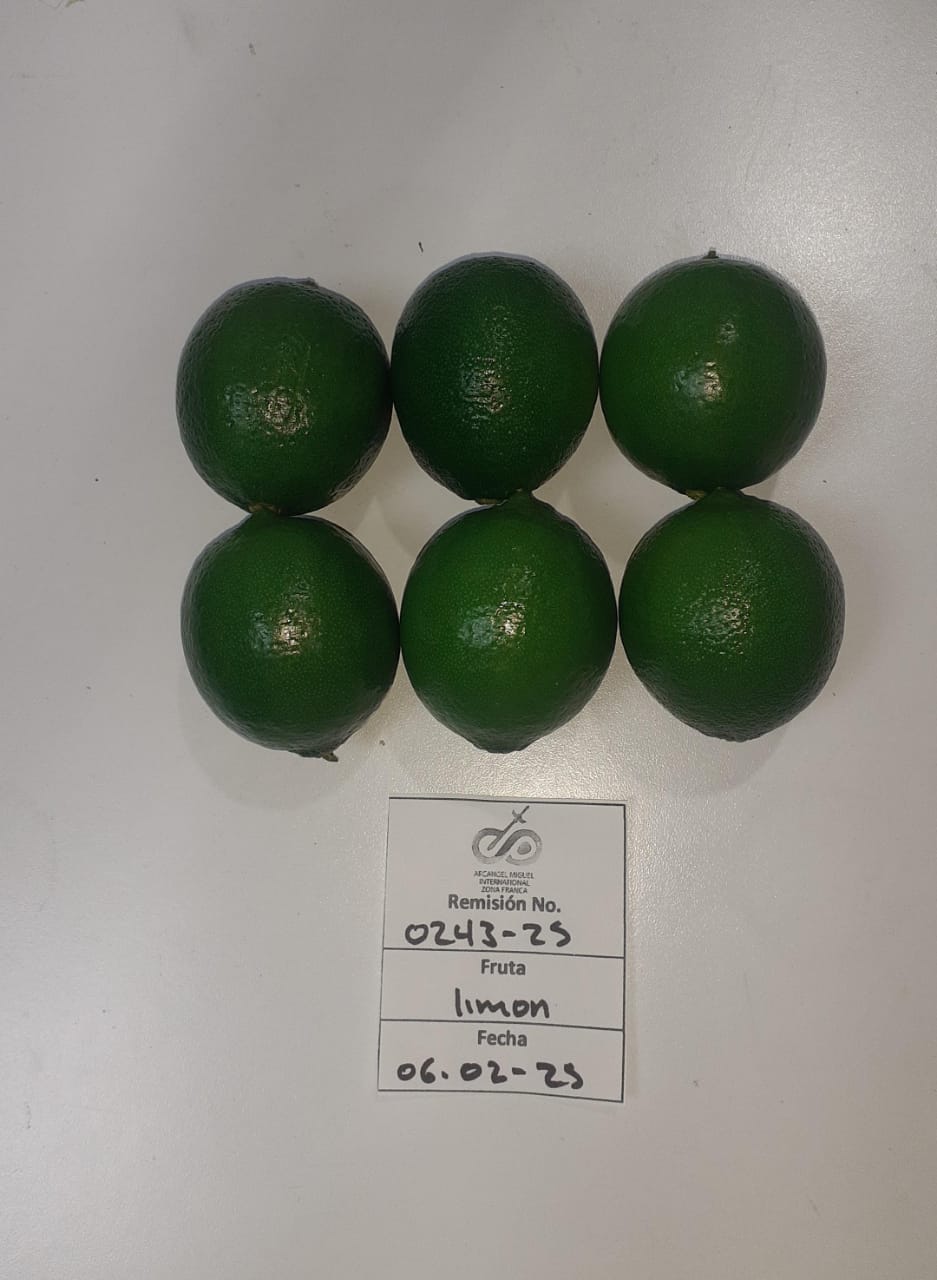 ARCANGEL MIGUEL
INTERNATIONAL
ZONA FRANCA
Remisión No.
0243-25
Fruta
limon
Fecha
06.02-25